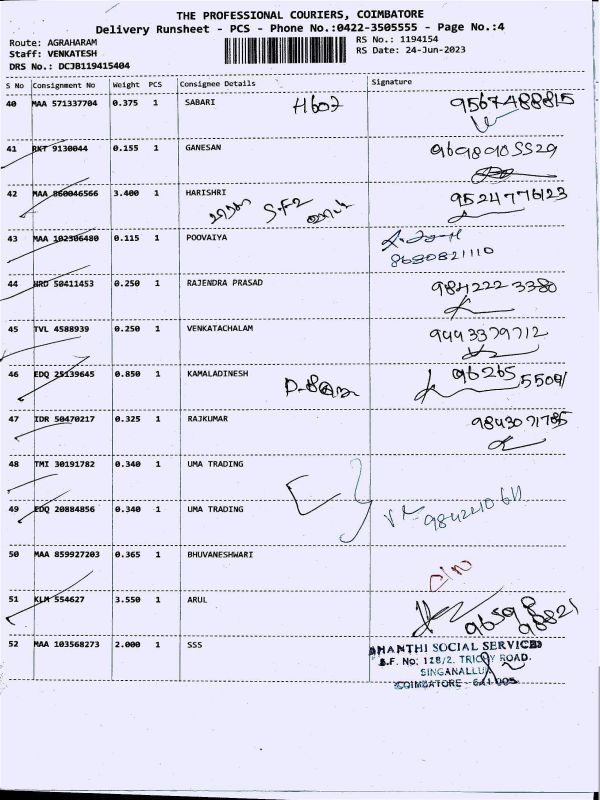 THE PROFESSIONAL COURIERS, COIMBATORE
Delivery Runsheet - PCS - Phone No.:0422-3505555 - Page No.:4
Route: AGRAHARAM
RS No.: 1194154
Staff: VENKATESH
RS Date: 24-Jun-2023
DRS No.: DCJB119415404
S No Consignment No Weight PCS Consignee Details Signature
40 MAA 571337704 0.375 1 SABARI H602 9567488815
41 RKT 9130044 0.155 1 GANESAN
42 MAA 860046566 3.400 1 HARISHRI 9524776123
S.F2
43 MAA 102306480 0.115 1 POOVAIYA
8680821110
44 HRD 50411453 0.250 1 RAJENDRA PRASAD 984222 3380
45 TVL 4588939 0.250 1 VENKATACHALAM 9443379712
46 EDQ 25139645 0.850 1 KAMALADINESH 96265 55091
47 IDR 50470217 0.325 1 RAJKUMAR 9843071785
48 TMI 30191782 0.340 1 UMA TRADING
49 EDQ 20884856 0.340 1 UMA TRADING
50 MAA 859927203 0.365 1 BHUVANESHWARI
51 KLM 554627 3.550 1 ARUL 96598 98821
52 MAA 103568273 2.000 1 SSS
SHANTHI SOCIAL SERVICES
S.F. No: 128/2. TRICHY ROAD.
SINGANALLUR
COIMBATORE - 641 005